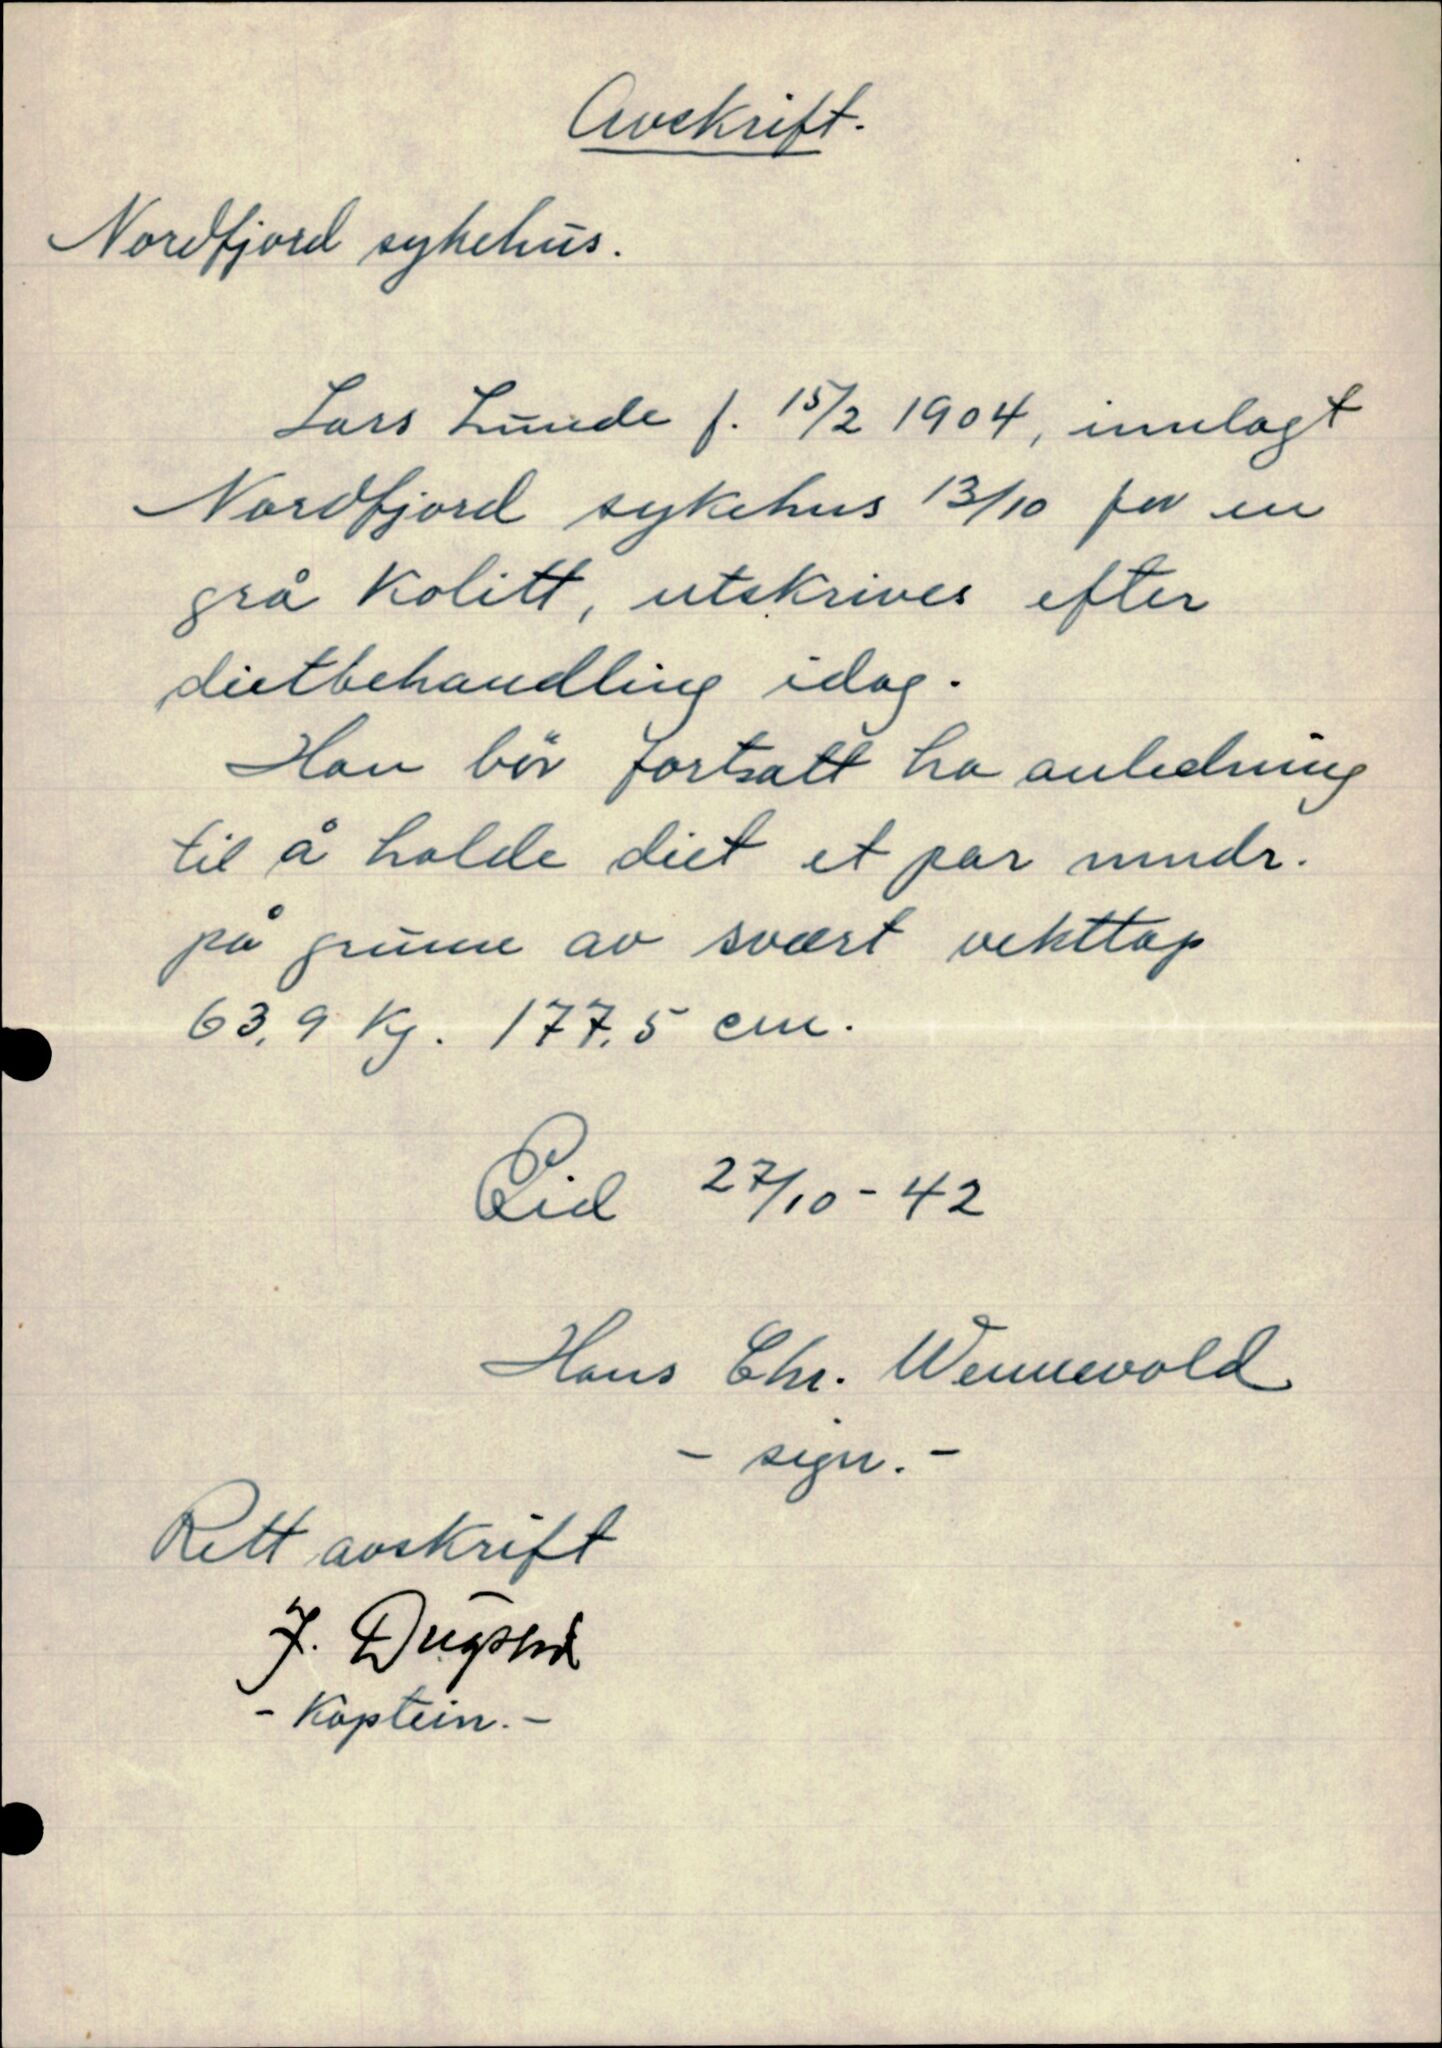 Avskrift.
Nordfjord sykehus.
Lars Lunde f. 15/2 1904, innlagt
Nordfjord sykehus 13/10 for en
grå kolitt, utskrives efter
dietbehandling idag.
Han bör fortsatt ha anledning
til å holde diet et par mndr.
på grunn av svært vekttap
63,9 kg. 177,5 cm.
Eid 27/10 - 42
Hans Chr. Wennevold
- sign. -
Rett avskrift
J.
- Kaptein. -